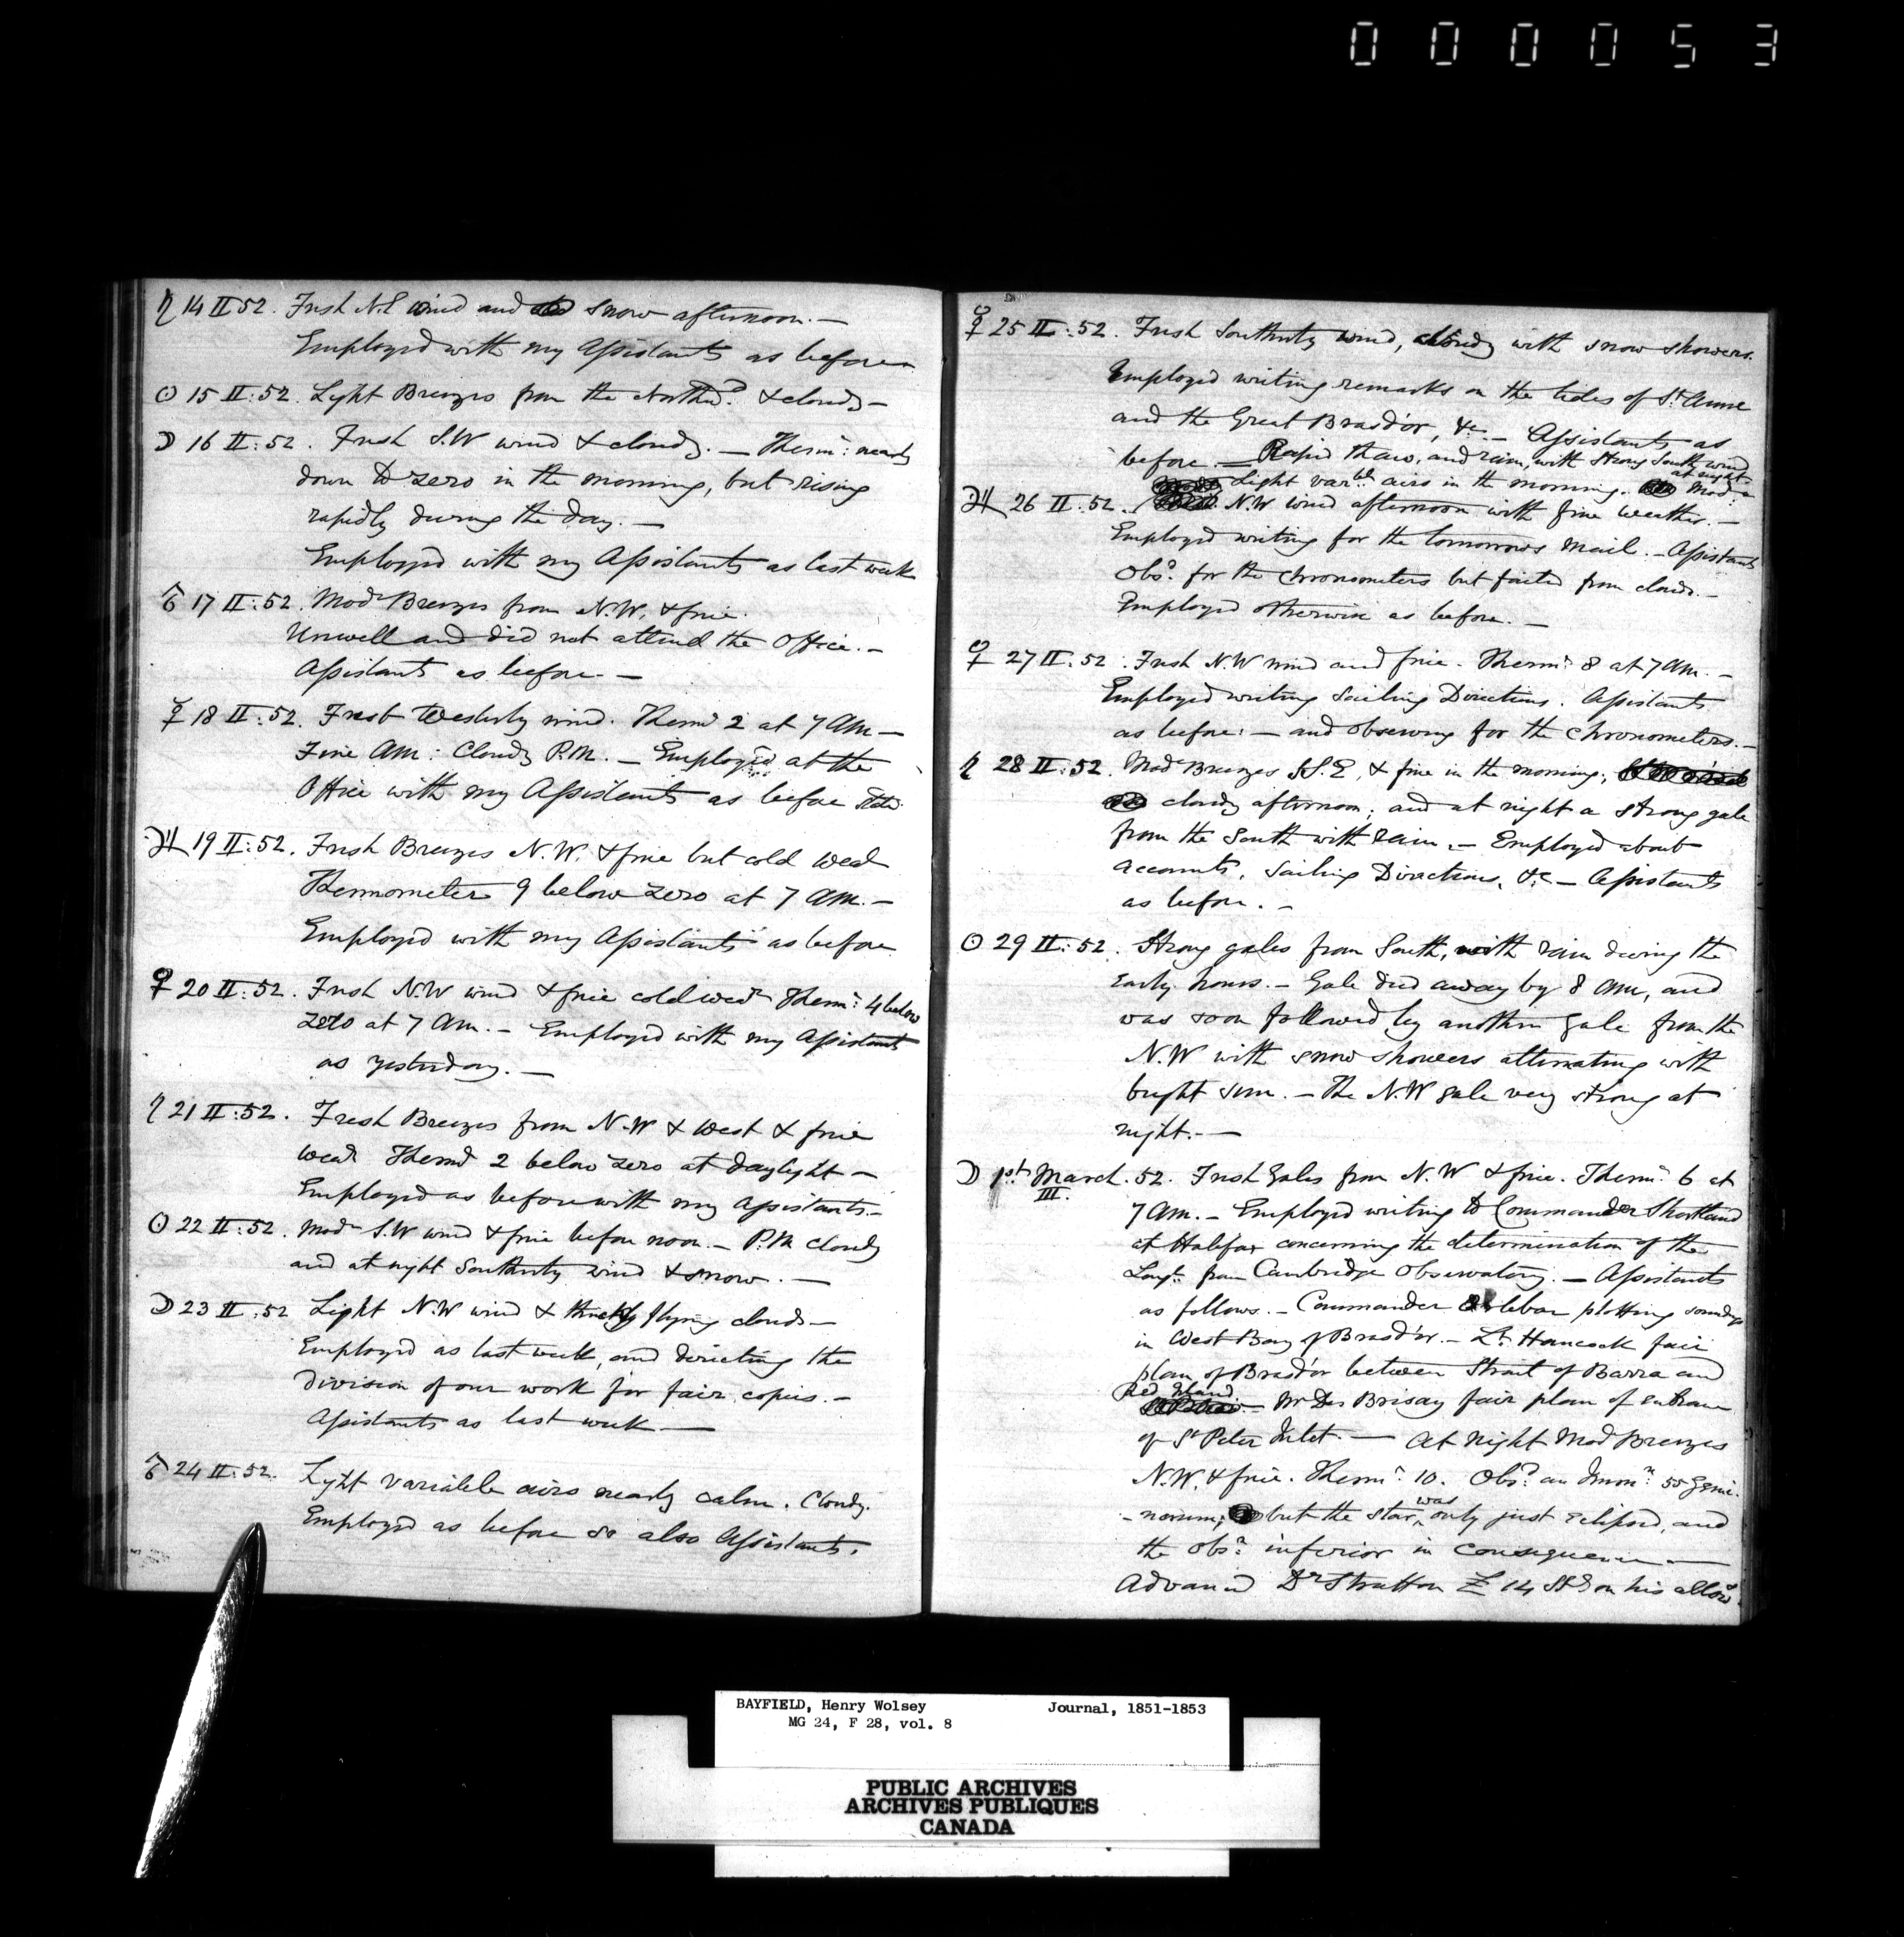 000053
♄ 14 II 52. Fresh N.E wind and snow afternoon. —
Employed with my Assistants as before
☉ 15 II: 52. Light Breezes from the Northwd. & cloudy —
☽ 16 II: 52. Fresh S.W wind & cloudy. — Thermr: nearly
down to zero in the morning, but rising
rapidly during the day. —
Employed with my Assistants as last week
♂ 17 II: 52. Modr Breezes from N.W. & fine.
Unwell and did not attend the Office. —
Assistants as before. —
☿ 18 II: 52. Fresh Westerly wind. Thermr 2 at 7 AM —
Fine AM: Cloudy P.M. — Employed at the
Office with my Assistants as before
♃ 19 II: 52. Fresh Breezes N.W. & fine but cold Wear
Thermometer 9 below zero at 7 AM. —
Employed with my Assistants as before
♀ 20 II: 52. Fresh N.W wind & fine cold wear Thermr: 4 below
zero at 7 AM. — Employed with my Assistants
as yesterday. —
♄ 21 II: 52. Fresh Breezes from N.W & West & fine
Wear Thermr 2 below zero at daylight —
Employed as before with my Assistants. —
☉ 22 II: 52. Modr S.W wind & fine before noon. — P.M cloudy
and at night Southerly wind & snow. —
☽ 23 II: 52 Light N.W wind & flying clouds —
Employed as last week, and directing the
division of our work for fair copies. —
Assistants as last week —
♂ 24 II: 52. Light variable airs nearly calm. Cloudy.
Employed as before so also Assistants.
☿ 25 II: 52. Fresh Southerly wind, cloudy with snow showers.
Employed writing remarks on the tides of St. Anne
and the Great Bras d'or, &c. — Assistants as
before. — Rapid thaw, and rain, with strong South wind
at night.
Light varble airs in the morning. Modr
♃ 26 II: 52. N.W wind afternoon with fine weather. —
Employed writing for the tomorrows mail. — Assistants
Obsd. for the chronometers but failed from clouds. —
Employed otherwise as before. —
♀ 27 II: 52. Fresh N.W wind and fine. Thermr 8 at 7 AM. —
Employed writing Sailing Directions. Assistants
as before: — and observing for the chronometers. —
♄ 28 II: 52. Modr Breezes S.S.E, & fine in the morning;
cloudy afternoon; and at night a strong gale
from the South with rain. — Employed about
accounts, Sailing Directions, &c — Assistants
as before. —
☉ 29 II: 52. Strong gales from South, with rain during the
early hours. — Gale died away by 8 AM, and
was soon followed by another gale from the
N.W with snow showers alternating with
bright sun. — The N.W gale very strong at
night. —
☽ 1st March. 52. Fresh Gales from N.W & fine. Thermr 6 at
III.
7 AM. — Employed writing to Commander Shortland
at Halifax concerning the determination of the
Longe. from Cambridge Observatory. — Assistants
as follows. — Commander Orlebar plotting soundgs
in West Bay of Bras d'or. — Lt. Hancock fair
plan of Bras d'or between Strait of Barra and
Red Island.
— Mr Des Brisay fair plan of entrance
of St Peter Inlet. — At night Mod Breezes
N.W. & fine. Thermr. 10. Obsd. an Immn: 55 Gemi-
-norum; but the star was only just eclipsed, and
the obsn: inferior in consequence —
Advanced Dr Stratton £ 14 Stg on his allowe.
BAYFIELD, Henry Wolsey Journal, 1851-1853
MG 24, F 28, vol. 8
PUBLIC ARCHIVES
ARCHIVES PUBLIQUES
CANADA